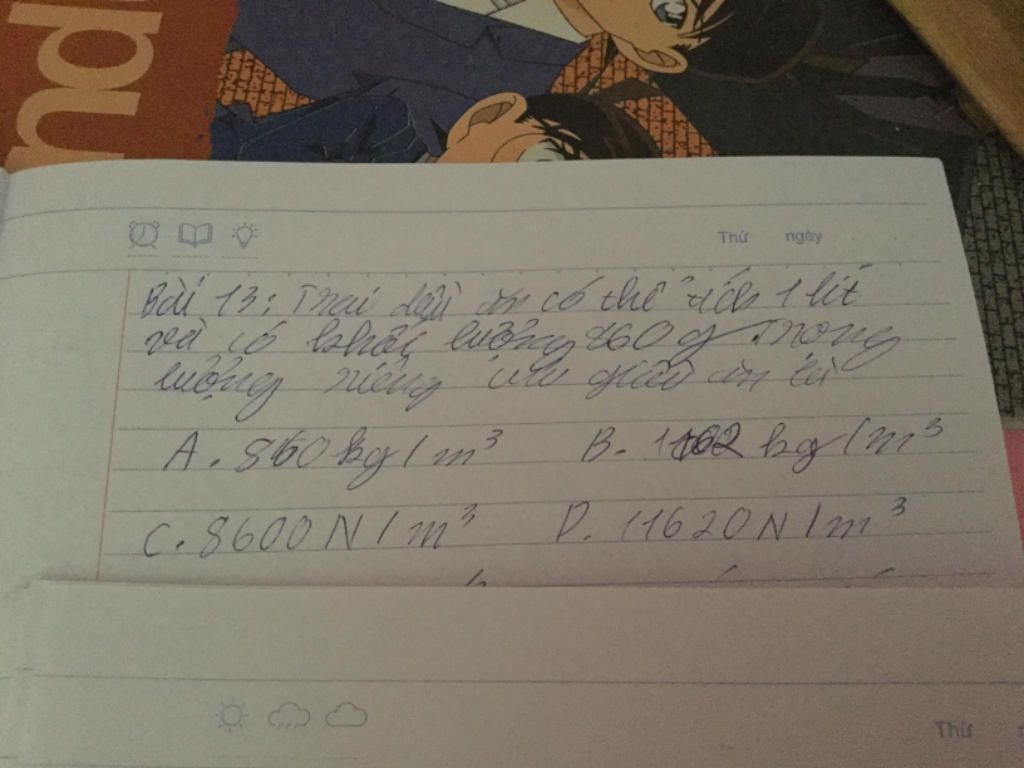 nd
Thứ ngày
Bài 13: Trai dầu ăn có thể tích 1 lít
và có khối lượng 860g Trong
lượng riêng của dầu ăn là
A. 860kg/m³ B. 1162 kg/m³
C. 8600N/m³ D. 11620N/m³
Thứ